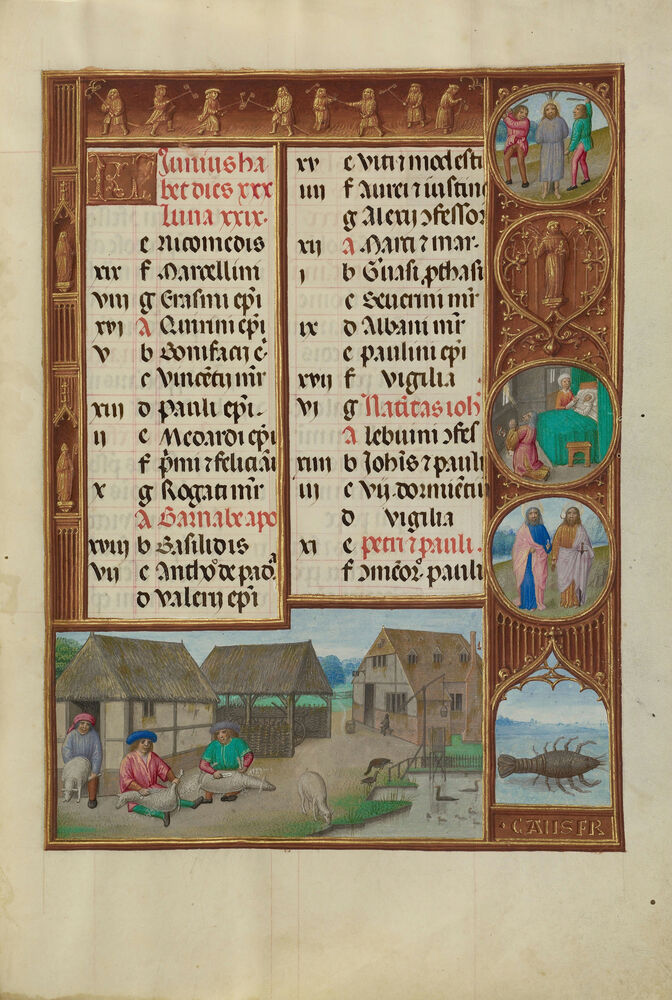 KL Junius ha
bet dies xxx
Luna xxix.
e Nicomedis
xix f Marcellini
viii g Erasmi epi
xvi A Quirini epi
v b Bonifacii e
c Vincentii mr
xiii d Pauli epi.
ii e Medardi epi
f pmi ⁊ feliciani
x g Rogati mr
A Barnabe apo
xviii b Basilidis
vii c Anthoͦ de pada
d Valerii epi
xv e Viti ⁊ modesti
iiii f Aurei ⁊ iustine
g Alexii ɔfessor
xii A Marci ⁊ mar.
i b Geruasi ꝓthasi
c Seuerini mr
ix d Albani mr
e paulini epi
xvii f vigilia
vi g Natiuitas ioh
A lebuini ɔfes
xiiii b Johis ⁊ pauli
iii c Vii. dormientiu
d vigilia
xi e petri ⁊ pauli.
f ɔmeor. pauli
CANSER